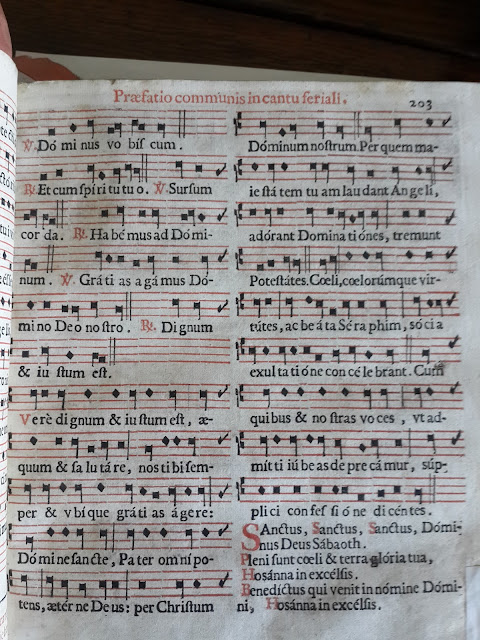 Præfatio communis in cantu feriali.
203
℣. Dó mi nus vo biſ cum.
℟. Et cum ſpi ri tu tu o. ℣. Surſum
cor da. ℟. Ha bé mus ad Dó mi-
num. ℣. Grá ti as a gá mus Dó-
mi no De o no ſtro. ℟. Di gnum
& iu ſtum eſt.
Verè di gnum & iu ſtum eſt, æ-
quum & ſa lu tá re, nos ti bi ſem-
per & v bí que grá ti as á ge re:
Dó mi ne ſancte, Pa ter om ni po-
tens, ætér ne De us: per Chriſtum
Dóminum noſtrum. Per quem ma-
ie ſtá tem tu am lau dant An ge li,
adórant Domina ti ónes, tremunt
Poteſtátes. Cœli, cœlorúmque vir-
tútes, ac be á ta Sé ra phim, só ci a
exul ta ti óne con cé le brant. Cum
qui bus & no ſtras vo ces, vt ad-
mít ti iú be as de pre cá mur, súp-
pli ci con feſ ſi ó ne di céntes.
SAnctus, Sanctus, Sanctus, Dómi-
nus Deus Sábaoth.
Pleni ſunt cœli & terra glória tua,
Hoſánna in excélſis.
Benedíctus qui venit in nómine Dómi-
ni, Hoſánna in excélſis.